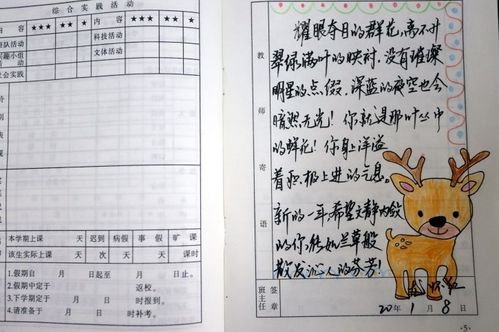 综合实践活动
内容 ★★★★ ★★★ ★★ ★ 内容 ★★★★ ★★★ ★★ ★
队活动 科技活动
兴趣小组活动 文体活动
社会实践
本学期上课 天 迟到 病假 事假 旷课
该生实际上课 天 次 天 天 节
1.假期自 月 日起至 月 日止。
2.假期中定于 返校。
3.下学期定于 月 日 时报到。
4.请准备于 月 日 时补考。
教师寄语
耀眼夺目的群花,离不开
翠绿满叶的映衬,没有璀璨
明星的点缀,深蓝的夜空也会
暗然无光!你就是那叶丛中
的鲜花!你身上洋溢
着积极上进的气息。
新的一年希望文静内敛
的你,能如兰草般
散发沁人的芬芳
班主任 签章
20 年 1 月 8 日
·5·